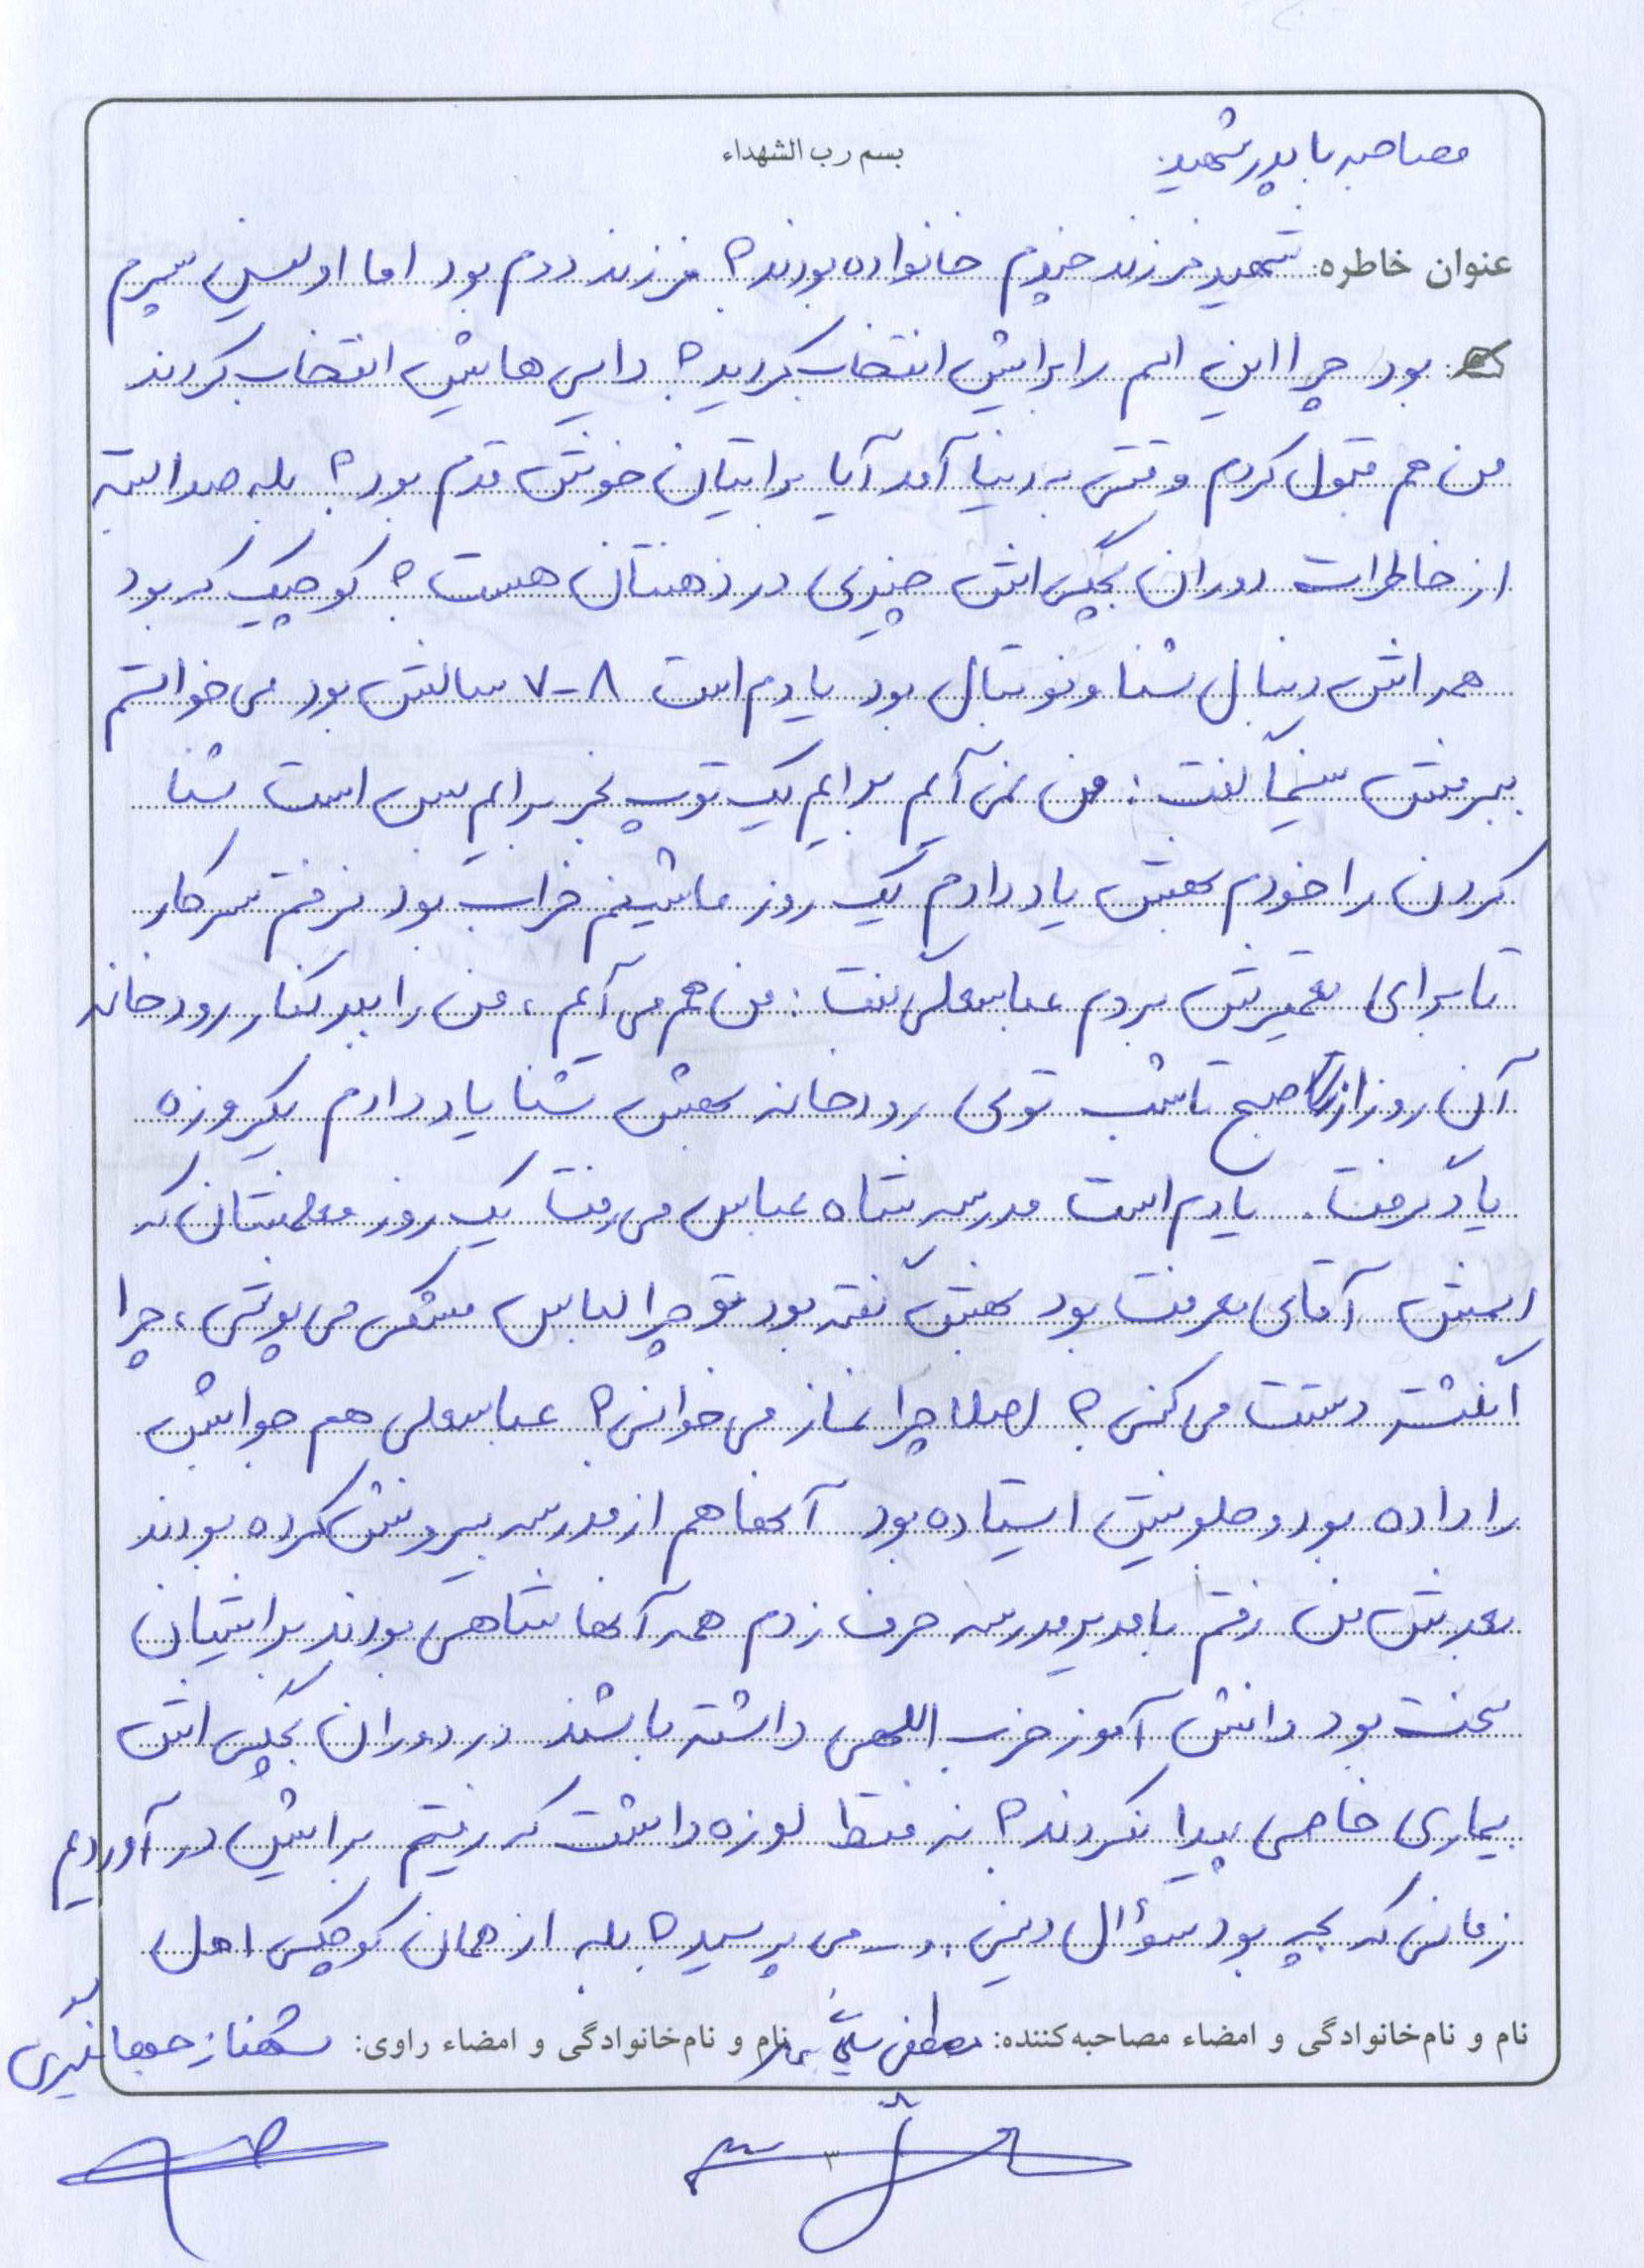 مصاحبه با پدر شهید:
بسم رب الشهداء
عنوان خاطره: شهید فرزند چندم خانواده بودند؟ فرزند دوم بود اما اولین پسرم
بود چرا این اسم را برایش انتخاب کردید؟ دایی هایش انتخاب کردند
من هم قبول کردم وقتی به دنیا آمد آیا برایتان خوش قدم بود؟ بله صد البته
از خاطرات دوران بچگی اش چیزی در ذهنتان هست؟ کوچیک که بود
همه اش دنبال شنا و فوتبال بود یادم است ۸-۷ سالش بود می خواستم
ببرمش سینما گفت: من نمی آیم برایم یک توپ بخر برایم بس است شنا
کردن را خودم بهش یاد دادم یک روز ماشینم خراب بود نرفتم سرکار
تا برای تعمیرش بردم عباسعلی گفت: من هم می آیم، من را ببر کنار رودخانه
آن روز از صبح تا شب توی رودخانه بهش شنا یاد دادم یکروزه
یاد گرفت. یادم است مدرسه شاه عباس می رفت یک روز معلمشان که
اسمش آقای معرفت بود بهش گفته بود تو چرا لباس مشکی می پوشی، چرا
انگشتر دستت می کنی؟ اصلا چرا نماز می خوانی؟ عباسعلی هم جوابش
را داده بود و جلویش ایستاده بود آنها هم از مدرسه بیرونش کرده بودند
بعدش من رفتم با مدیر مدرسه حرف زدم همه آنها شاهی بودند برایشان
سخت بود دانش آموز حزب اللهی داشته باشند در دوران بچگی اش
بیماری خاصی پیدا نکردند؟ نه فقط لوزه داشت که رفتیم برایش در آوردیم
زمانی که بچه بود سؤال دینی و... می پرسید؟ بله از همان کوچکی اهل
نام و نام‌خانوادگی و امضاء مصاحبه‌کننده: مصطفی نام و نام‌خانوادگی و امضاء راوی: شهناز جهانگیری
۳